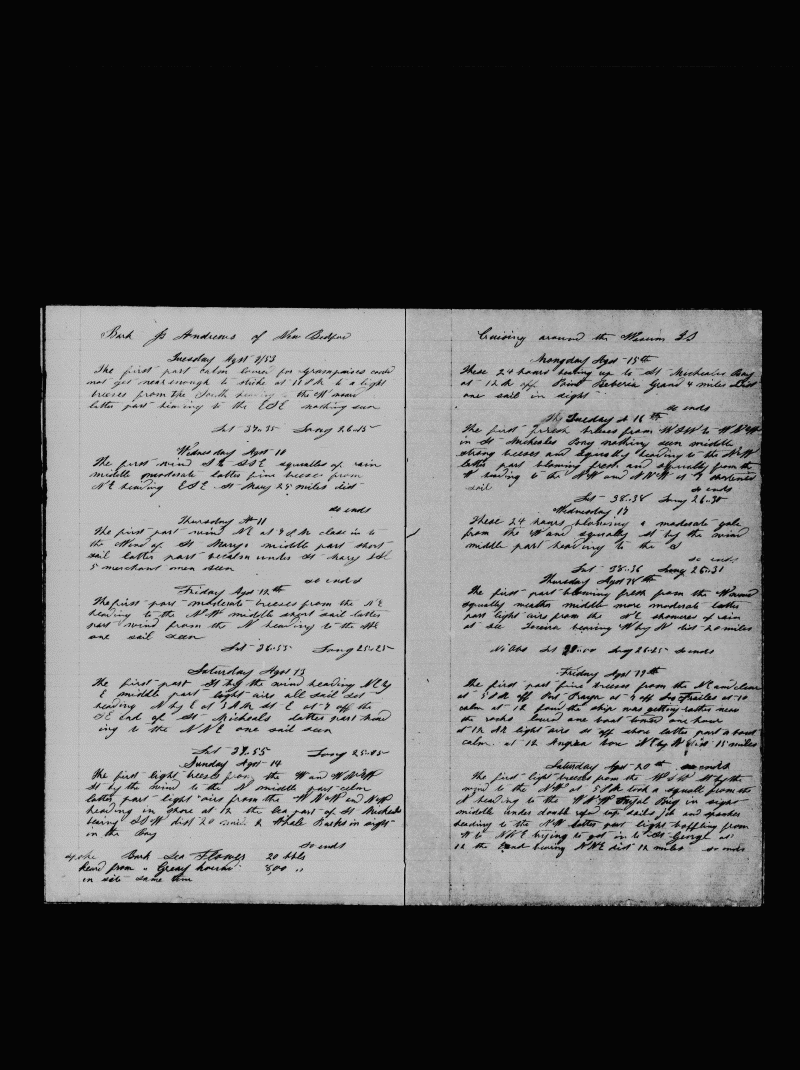 Bark Js Andrews of New Bedford
Tuesday Agst 9/53
The first part calm lowed for Grampuses could
not get near enough to strike at 11 P M to a light
breeses from the South heading the W
latter part heading to the ESE nothing seen
Lat 37..35 Long 26..15
Wednesday Agst 10
The first wind SSE squalls of rain
middle moderate latter fine breese from
NE heading ESE St Mary 25 miles dist
so ends
Thursday A 11
The first part wind NE at 4 P M close in to
the West of St Marys middle part short
sail latter part becalm under St Mary Isl
5 merchant men seen
so ends
Friday Agst 12th
The first part moderate breeses from the NE
heading to the NW middle short sail latter
part wind from the N heading to the
one sail seen
Lat 36..55 Long 25..25
Saturday Agst 13
The first part St by the wind heading N by
E middle part light airs all sail set
heading N by E at off the
SE end of St Micheals latter part head
ing to the NNE one sail seen
Lat 37.55 Long 25..05
Sunday Agst 14
The first light breeses from the W and WNW
St by the wind to the N middle part calm
latter part light airs from the and NW
heading in shore at 12 the part of St Micheals
bearing SSW dist 20 mil 2 Whale Barks in sight
in the Bay
so ends
spoke Bark Sea Flower 20 bbls
heard from " Gray hound 800 "
in site same time
Cruising around the Western Is
Mongday Agst 15th
These 24 hours beating up to St Micheales Bay
at 12 M off Point Grand 4 miles dist
one sail in sight
so ends
Tuesday A 16th
The first fresh breeses from WSW to WNW
in St Micheales Bay nothing seen middle
strong breeses and squally heading to the NW
latter part blowing fresh and squally from the
W heading to the NW and NNW at 9 shortened
sail
so ends
Lat 38.38 Long 26.30
Wednesday 17
These 24 hours blowing a moderate gale
from the W and squally St by the wind
middle part heading to the S
so ends
Lat 38.36 Long 26.31
Thursday Agst 18th
The first part blowing fresh from the W and
squally weather middle more moderate latter
part light airs from the NE showers of rain
at Terceira bearing W by N dist 20 miles
No Obs Long 26.25 so ends
Friday Agst 19th
The first part fine breeses from the NE and clear
at 5 P M off Port at 9 off Los Frailes at 10
calm at 12 found the ship was getting rather near
the rocks one boat towed one hour
at 12 M light airs St off shore latter part a bout
calm. at 12 Angra bore W by N dist 15 miles
Saturday Agst 20th so ends
The first light breeses from the WSW St by the
wind to the NW at 5 P M took a squall from the
N heading to the WNW Fayal Brig in sight
middle under double reef top sails jib and spanker
heading to the NW latter part light baffling from
W to NNE trying to get in to St George at
12 the Land bearing NNE dist 12 miles so ends